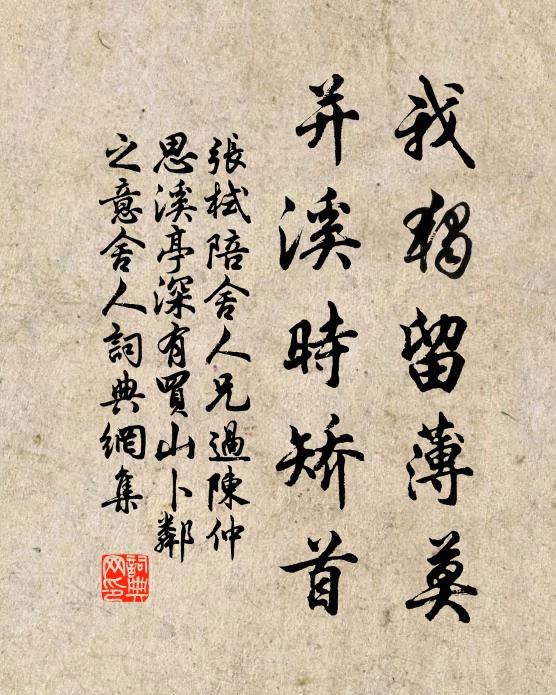 我獨留薄莫
并溪時矯首
張栻陪舍人兄過陳仲
思溪亭深有買山卜鄰
之意舍人詞典網集
詞典
网印